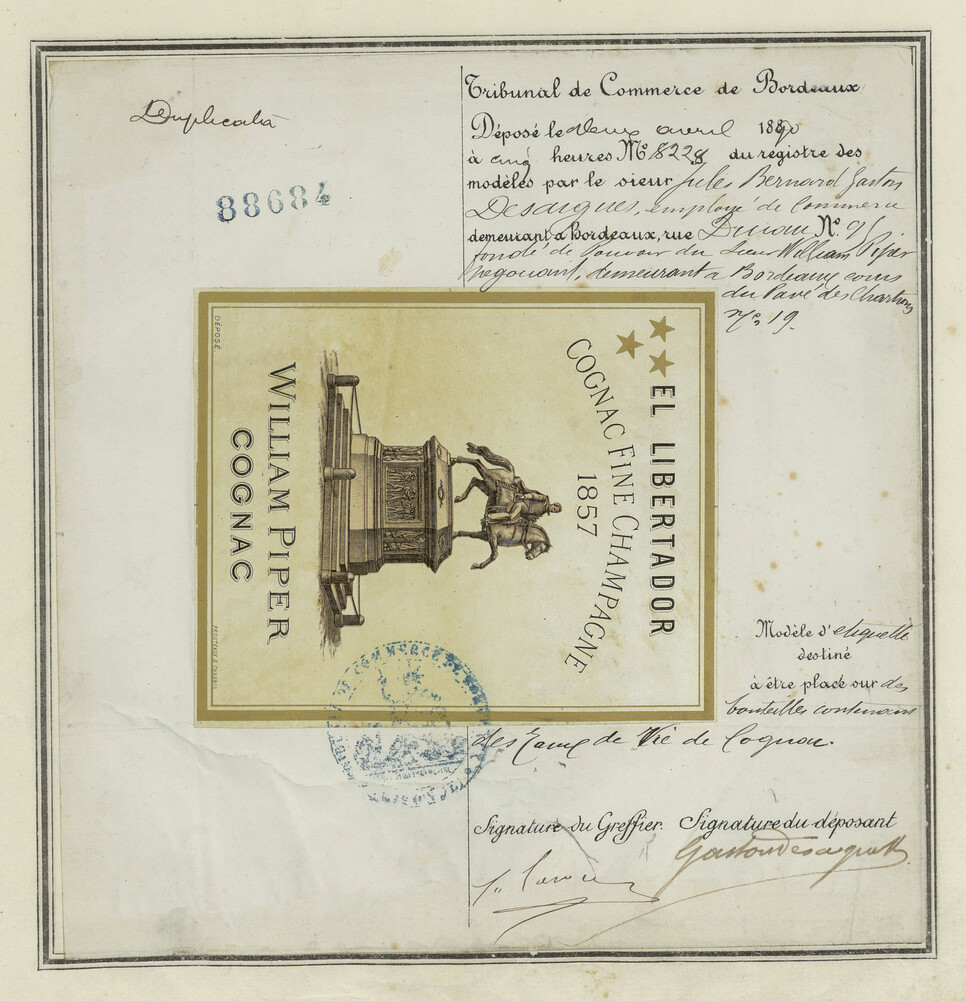 Duplicata
88684
Tribunal de Commerce de Bordeaux
Déposé le deux avril 1890
à cinq heures No 8228 du registre des
modèles par le sieur Jules Bernard Gaston
Desaigues, employé de Commerce
demeurant à Bordeaux, rue No 9
fondé de Pouvoir du Sieur William Piper
négociant, demeurant à Bordeaux cours
du Pavé des Chartrons
no 19.
DÉPOSÉ
EL LIBERTADOR
COGNAC FINE CHAMPAGNE
1857
WILLIAM PIPER
COGNAC
Modèle d'étiquette
destiné
à être placé sur des
bouteilles contenant
des Eaux de Vie de Cognac.
Signature du Greffier. Signature du déposant